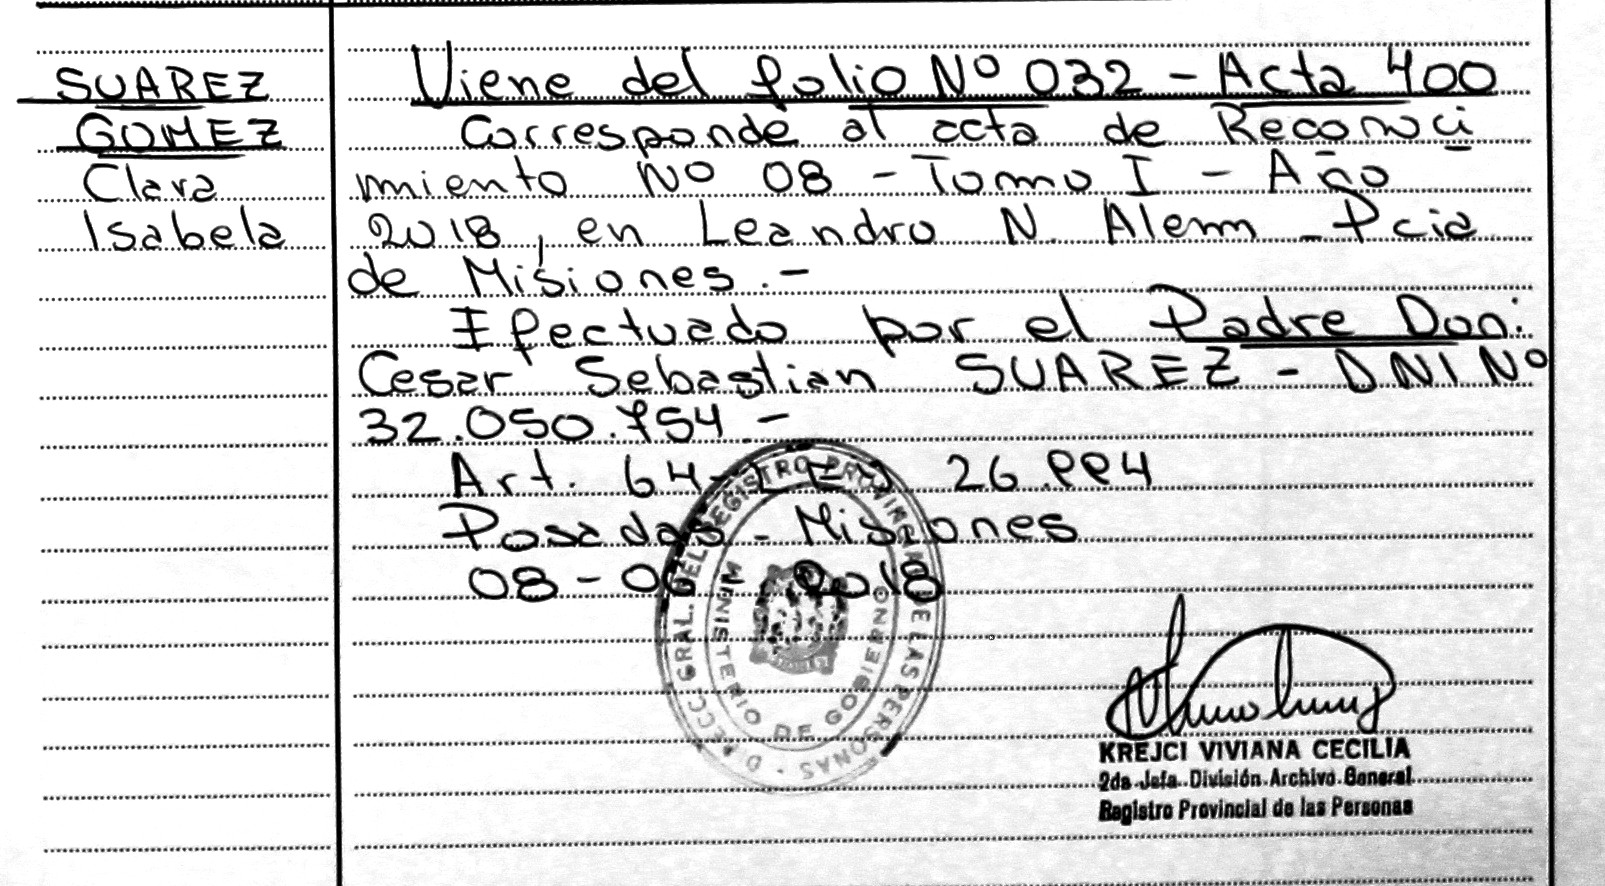 SUAREZ
GOMEZ
Clara
Isabela
Viene del folio Nº 032 - Acta 400
Corresponde al acta de Reconoci
miento Nº 08 - Tomo I - Año
2018, en Leandro N. Alem - Pcia
de Misiones.-
Efectuado por el Padre Don:
Cesar Sebastian SUAREZ - DNI Nº
32.050.754-
Art. 64 - LEY 26.994
Posadas - Misiones
08 - 06 - 2018
DIRECC. GRAL. DEL REGISTRO PROVINCIAL DE LAS PERSONAS -
MINISTERIO DE GOBIERNO
KREJCI VIVIANA CECILIA
2da. Jefa. División Archivo General
Registro Provincial de las Personas